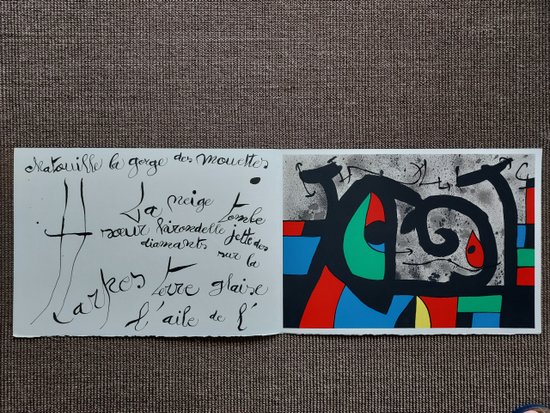 chatouille la gorge des mouettes
La neige tombe
sœur hirondelle jette des
diamants sur la
Harpes terre glaise
l'aile de l'